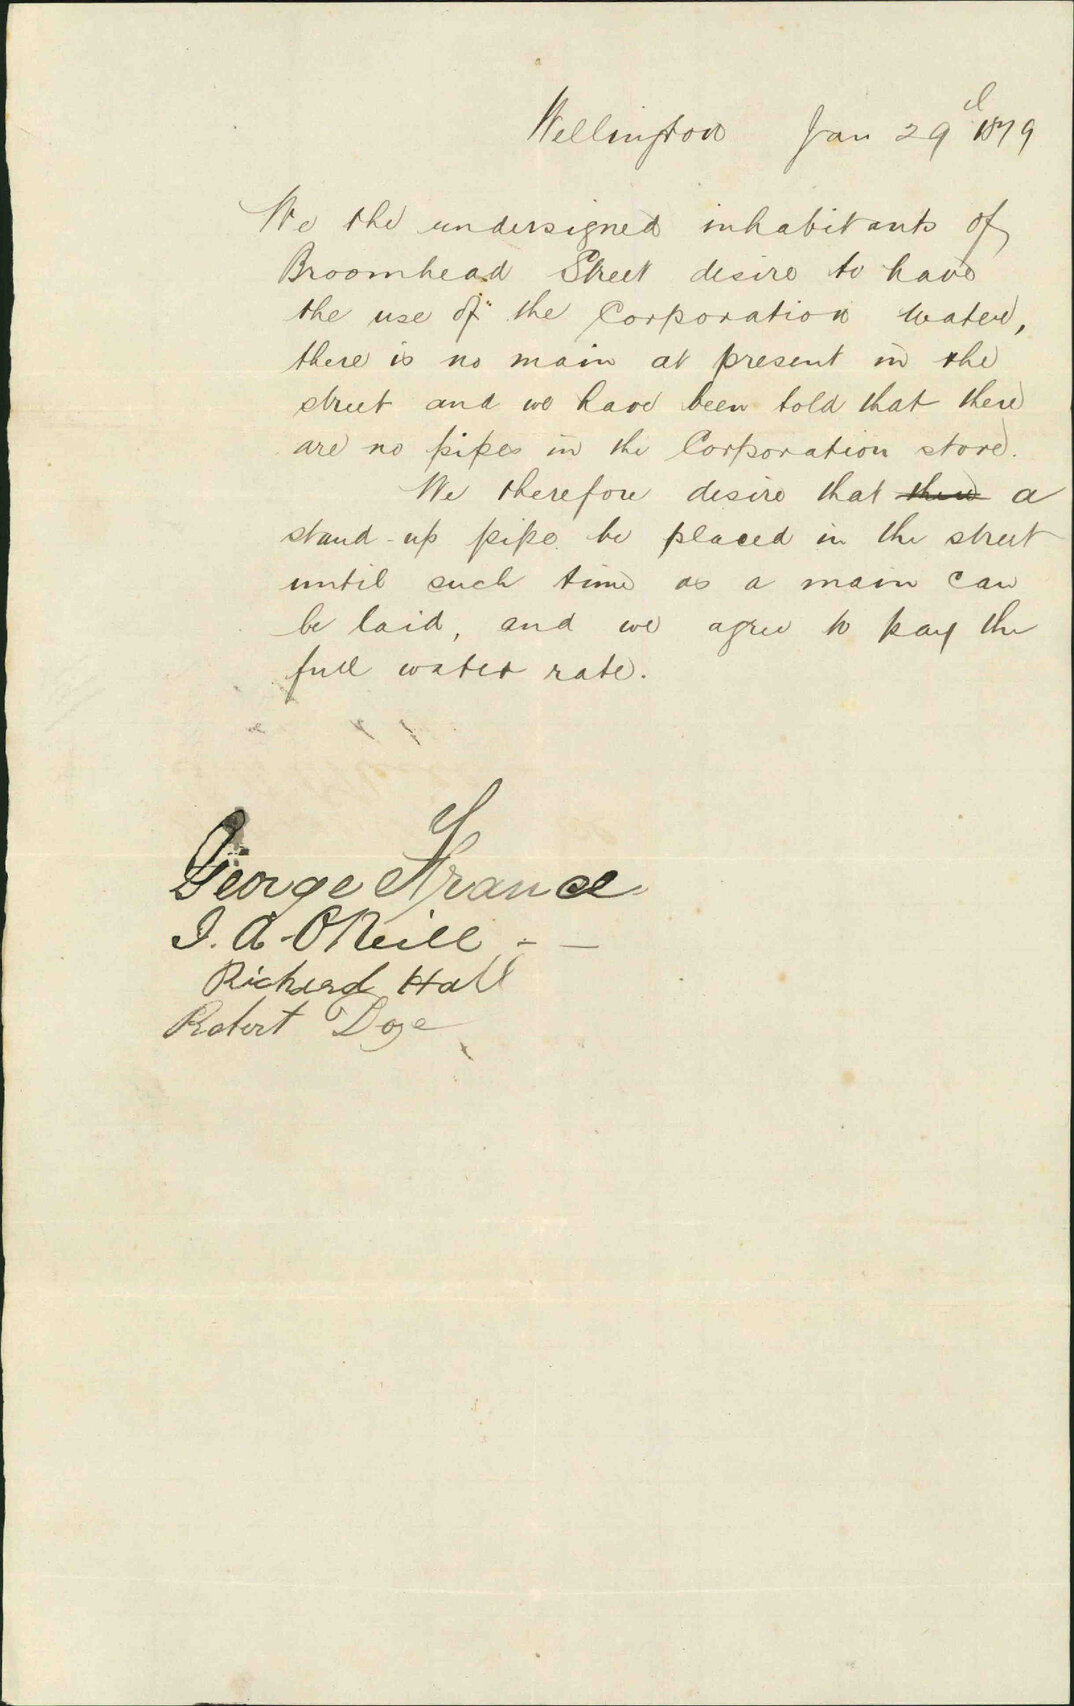 Wellington Jan 29th 1879
We the undersigned inhabitants of
Broomhead Street desire to have
the use of the Corporation water,
there is no main at present in the
street and we have been told that there
are no pipes in the Corporation store.
We therefore desire that there a
stand-up pipe be placed in the street
until such time as a main can
be laid, and we agree to pay the
full water rate.
George France
J. A. O'Neill
Richard Hall
Robert